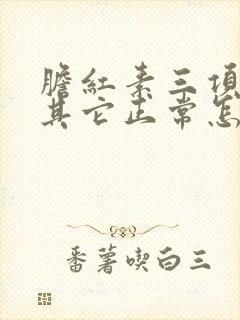 膽紅素三項
其它正常怎
番薯喫白三